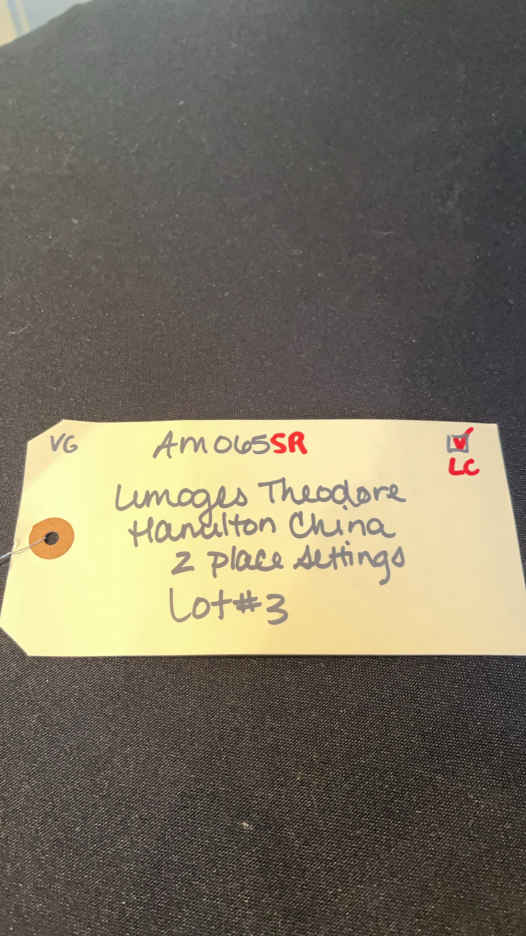 VG AM065SR ☑
LC
Limoges Theodore
Hanalton China
2 place settings
Lot #3